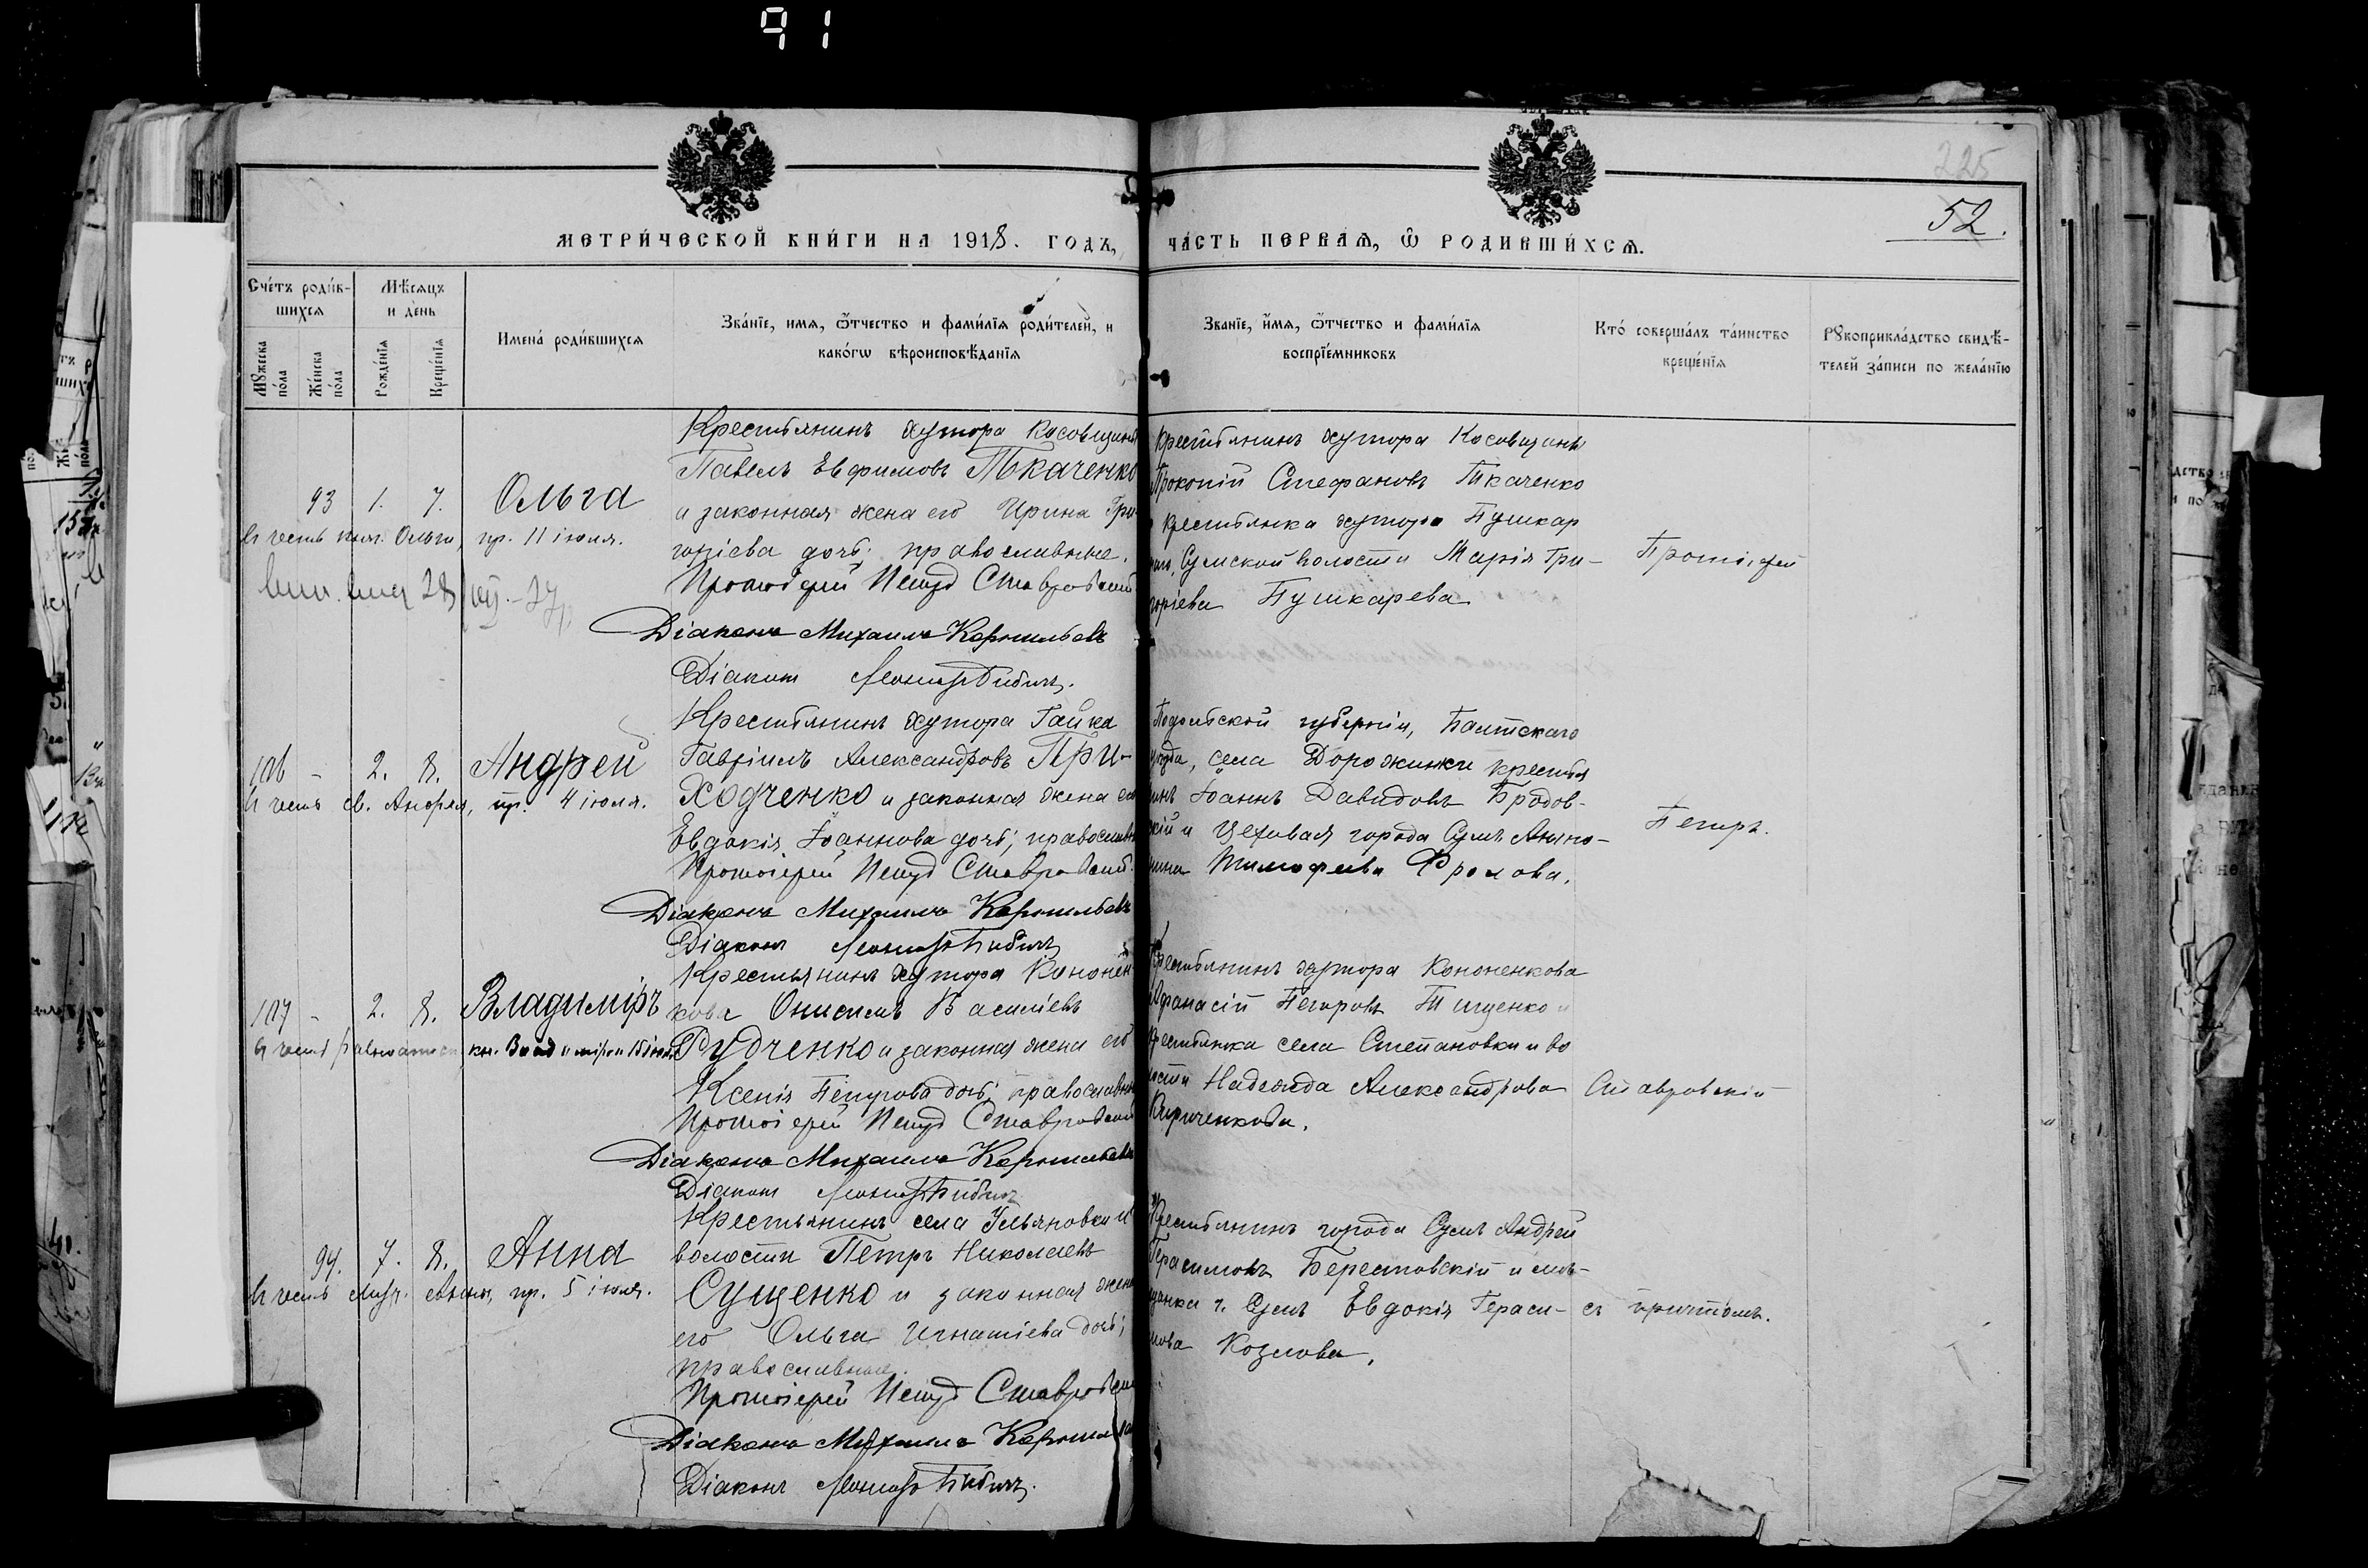 91
225
52.
МЕТРИ́ЧЕСКОЙ КНИ́ГИ НА 1918. ГОДЪ,
ЧА́СТЬ ПЕРВАѦ, Ѿ РОДИВШИ́ХСѦ.
Сче́тъ роди́в-
шихсѧ
Мѣ́сѧцъ
и де́нь
Мꙋ́жеска по́ла
Же́нска по́ла
Рожде́нїѧ
Креще́нїѧ
Имена̀ роди́вшихсѧ
Зва́нїе, имѧ, ѻ҆́тчество и фами́лїѧ роди́телей, и
како́гѡ вѣроисповѣ́данїѧ
Зва́нїе, и҆́мѧ, ѻ҆́тчество и фами́лїѧ
воспрїе́мниковъ
Кто̀ соверша́лъ та́инство
креще́нїѧ
Рꙋкоприкла́дство свидѣ́-
телей за́писи по жела́нїю
93 1. 7. Ольга
въ честь княг. Ольги, пр. 11 іюля.
Крестьянинъ хутора Косовщины
Павелъ Евфимовъ Ткаченко
и законная жена его Ирина Гри-
горіева дочь; православные.
Протоіерей Петръ Ставровскій
Діаконъ Михаилъ Корнильевъ
Діаконъ
Крестьянинъ хутора Косовщины
Прокопій Стефановъ Ткаченко
и крестьянка хутора Пушкар
Сумской волости Марія Гри-
горіева Пушкарева
Протоіерей
106 - 2. 8. Андрей
въ честь св. Андрея, пр. 4 іюля.
Крестьянинъ хутора Гайка
Гавріилъ Александровъ При-
ходченко и законная жена его
Евдокія Іоаннова дочь; православн
Протоіерей Петръ Ставровскій
Діаконъ Михаилъ Корнильевъ
Діаконъ
Подольской губерніи, Балтскаго
уѣзда, села Дорожинки крестья
нинъ Іоаннъ Давидовъ Бродов-
скій и цеховая города Сумъ Анто-
нина Тимофеева Фролова.
Петръ.
107 - 2. 8. Владиміръ
въ честь равноапост. кн. Владиміра 15 іюля
Крестьянинъ хутора Кононен-
кова Онисимъ Василіевъ
Рудченко и законная жена его
Ксенія Петрова дочь; православн
Протоіерей Петръ Ставровскій
Діаконъ Михаилъ Корнильевъ
Діаконъ
Крестьянинъ хутора Кононенкова
Афанасій Петровъ Тищенко и
крестьянка села Степановки и во
лости Надежда Александрова
Кириченкова.
Ставровскій
94. 7. 8. Анна
въ честь муч. Анны, пр. 5 іюля.
Крестьянинъ села Ульяновки и
волости Петръ Николаевъ
Сущенко и законная жена
его Ольга Игнатіева дочь;
православные.
Протоіерей Петръ Ставровскій
Діаконъ Михаилъ Корнильевъ
Діаконъ
Крестьянинъ города Сумъ Андрей
Герасимовъ Берестовскій и мѣ-
щанка г. Сумъ Евдокія Гераси-
мова Козлова.
съ причтомъ.